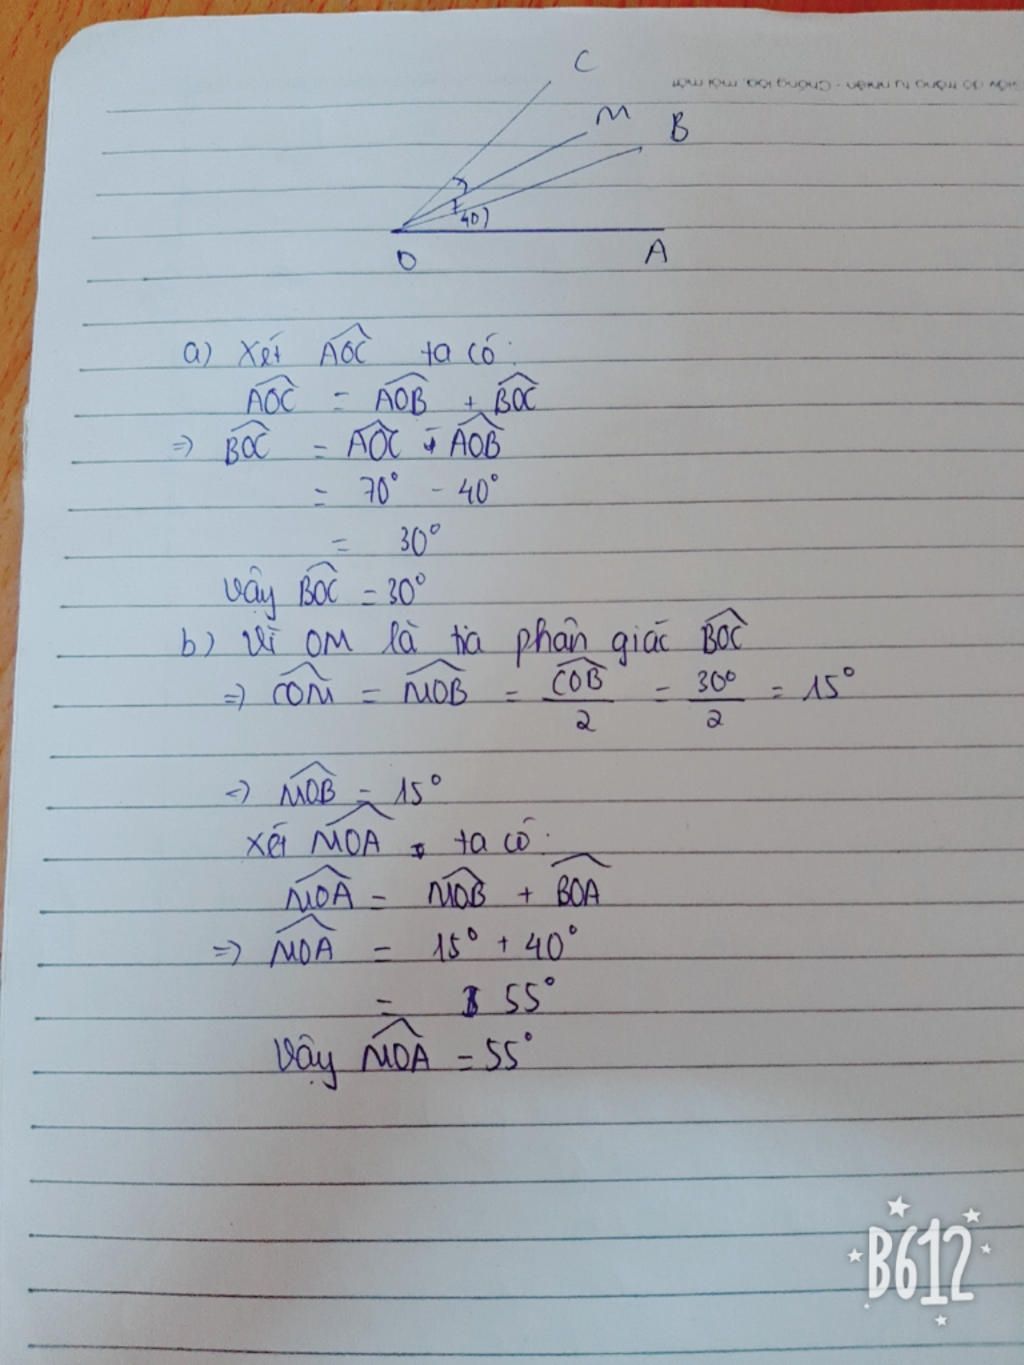 C
M
B
Giấy có trắng tự nhiên - Chống lóa, mỏi mắt
40
O
A
a) Xét AOC ta có:
AOC = AOB + BOC
=> BOC = AOC - AOB
= 70° - 40°
= 30°
Vậy BOC = 30°
b) Vì OM là tia phân giác BOC
=> COM = MOB = COB/2 = 30°/2 = 15°
=> MOB = 15°
Xét MOA ta có:
MOA = MOB + BOA
=> MOA = 15° + 40°
= 55°
Vậy MOA = 55°
B612